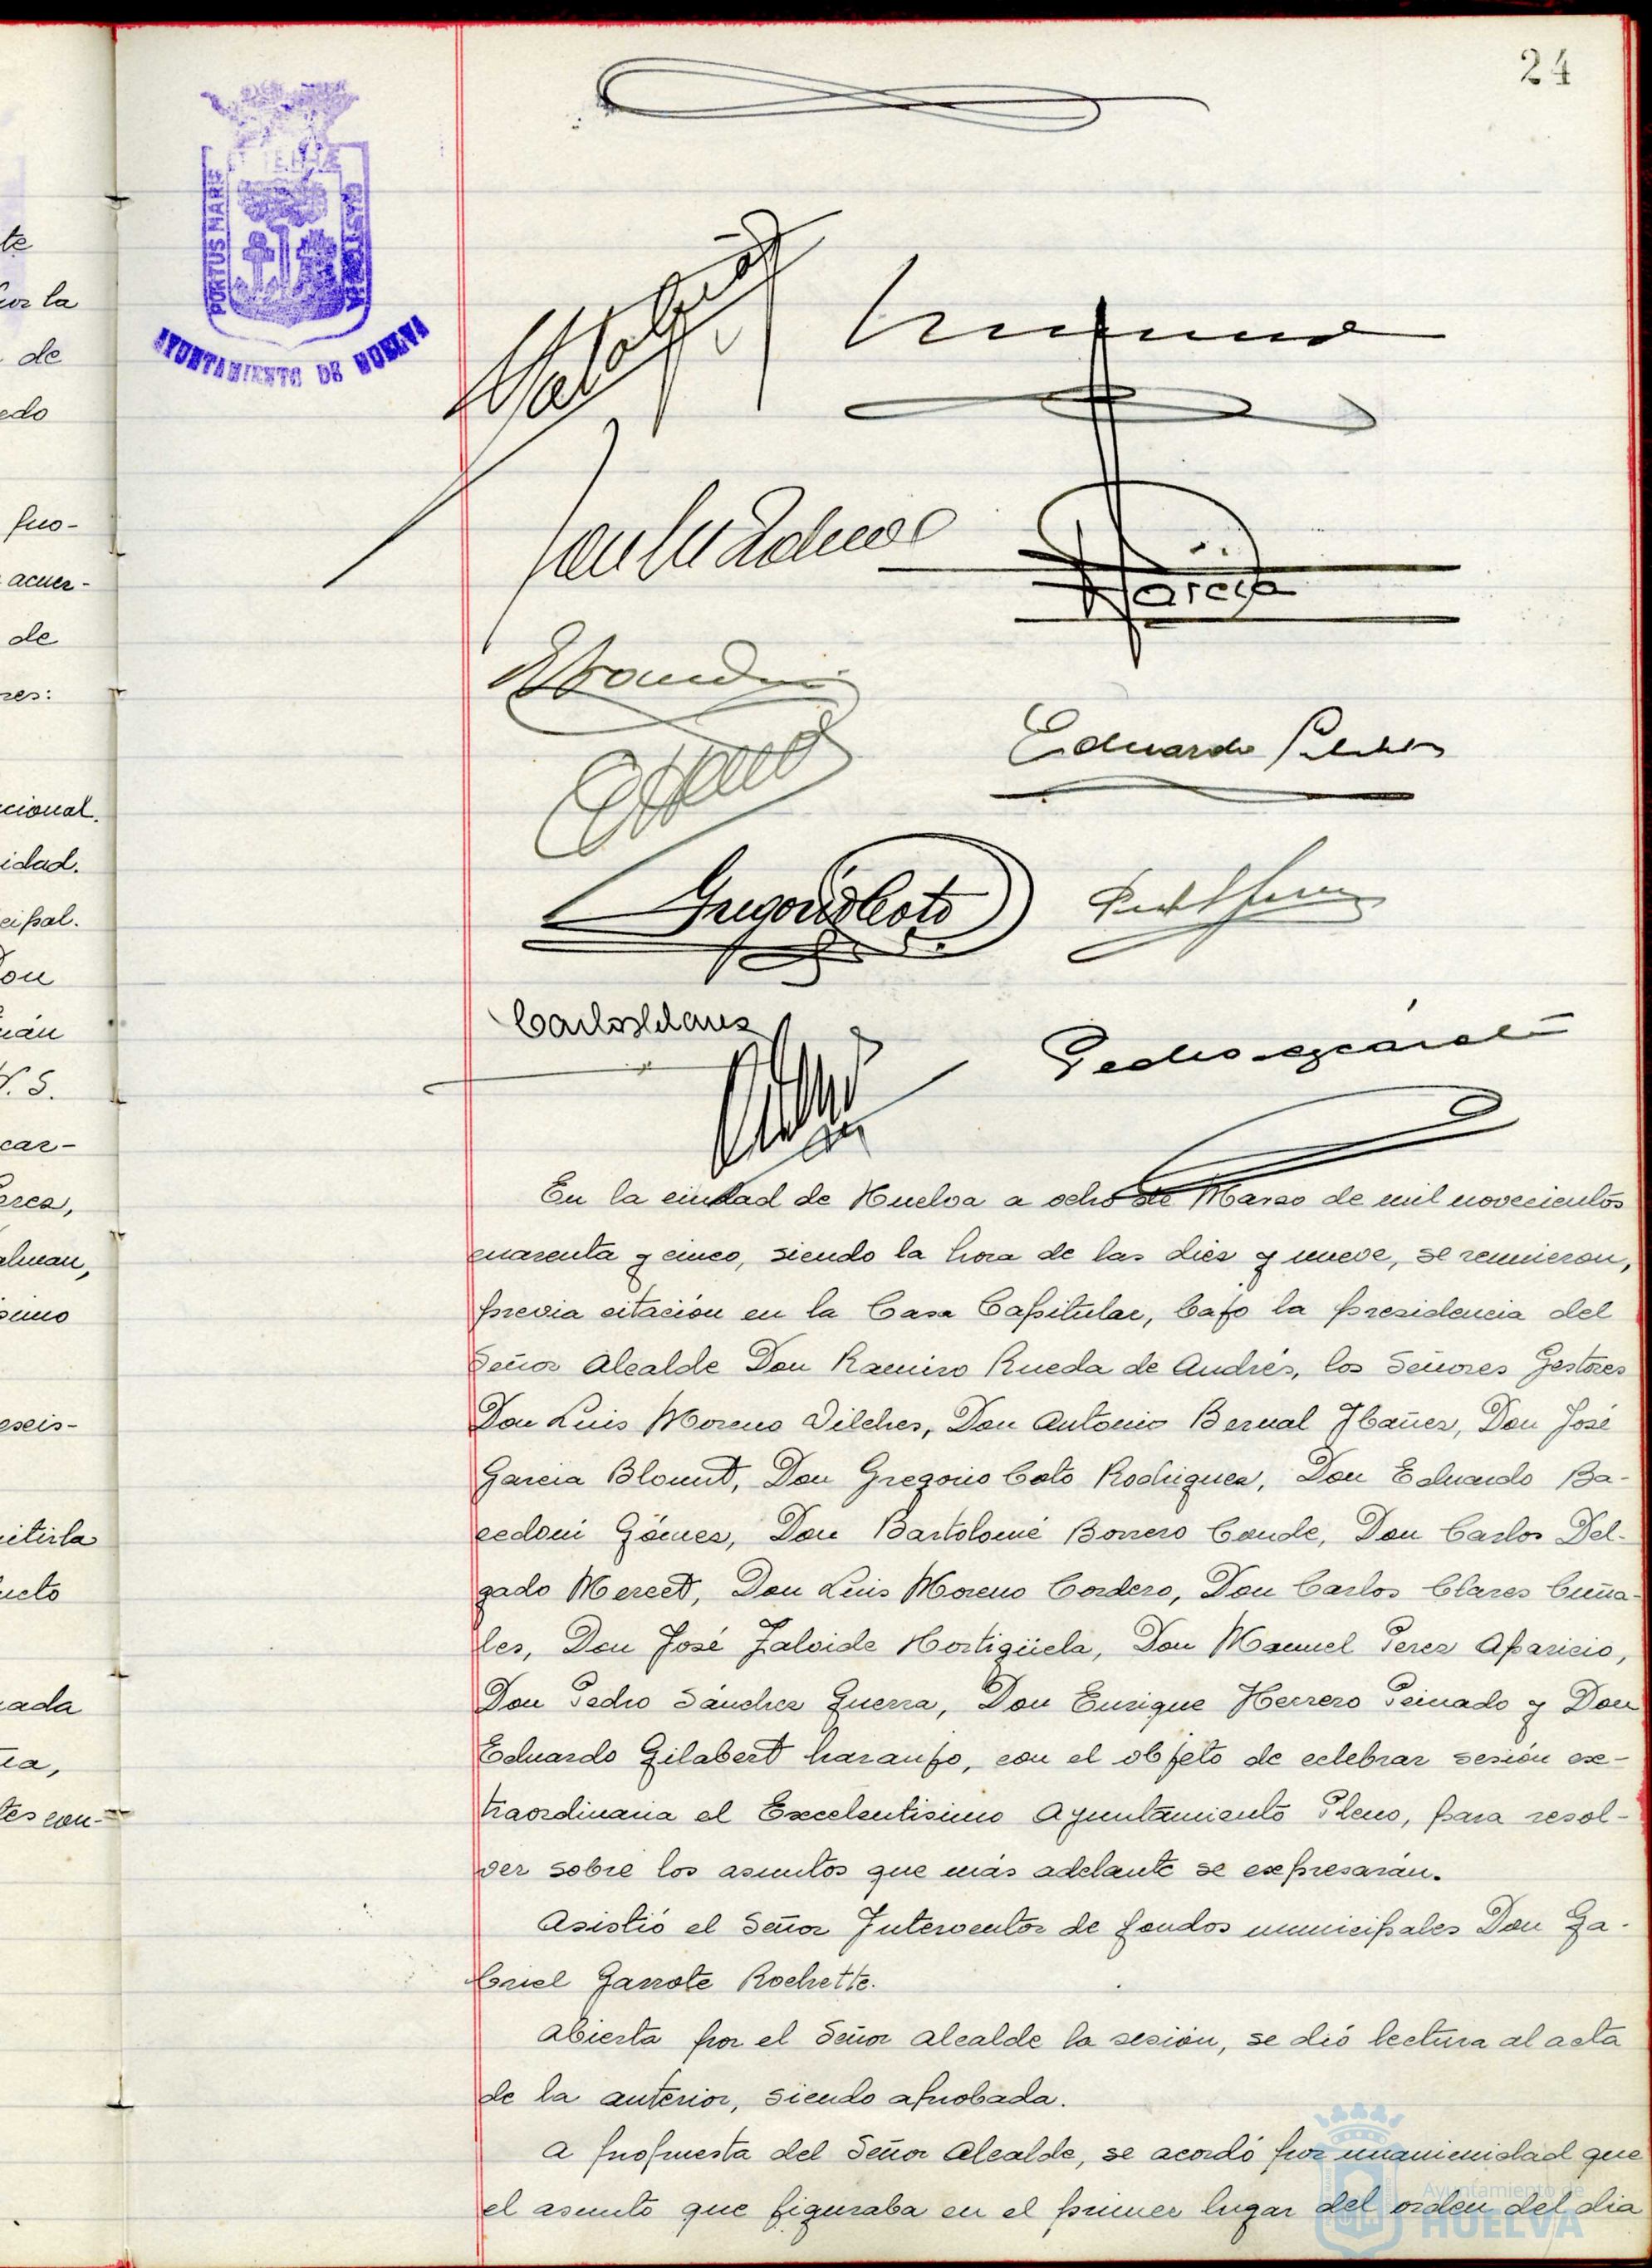 24
PORTUS MARIS
AYUNTAMIENTO DE HUELVA
te
por la
de
edo
fuo-
acuer-
de
res:
cional.
idad.
cipal.
Don
V. S.
car-
Perez,
eseis-
itirla
ucto
ada
ia,
tes con-
García
Eduardo
Gregorio Coto
Carlos Clares
Pedro
En la ciudad de Huelva a ocho de Marzo de mil novecientos
cuarenta y cinco, siendo la hora de las diez y nueve, se reunieron,
previa citación en la Casa Capitular, bajo la presidencia del
Señor Alcalde Don Ramiro Rueda de Andrés, los Señores Gestores
Don Luis Moreno Vilches, Don Antonio Bernal Ibañez, Don José
García Blount, Don Gregorio Coto Rodriguez, Don Eduardo Ba-
cedoni Gómez, Don Bartolomé Borrero Conde, Don Carlos Del-
gado Mercet, Don Luis Moreno Cordero, Don Carlos Clares Cuña-
les, Don José Zalvide Hortigüela, Don Manuel Perez Aparicio,
Don Pedro Sánchez Guerra, Don Enrique Herrero Peinado y Don
Eduardo Gilabert Naranjo, con el objeto de celebrar sesión ex-
traordinaria el Excelentisimo Ayuntamiento Pleno, para resol-
ver sobre los asuntos que más adelante se expresarán.
Asistió el Señor Interventor de fondos municipales Don Ga-
briel Garrote Rochette.
Abierta por el Señor Alcalde la sesión, se dió lectura al acta
de la anterior, siendo aprobada.
A propuesta del Señor Alcalde, se acordó por unanimidad que
el asunto que figuraba en el primer lugar del orden del dia
Ayuntamiento de
HUELVA